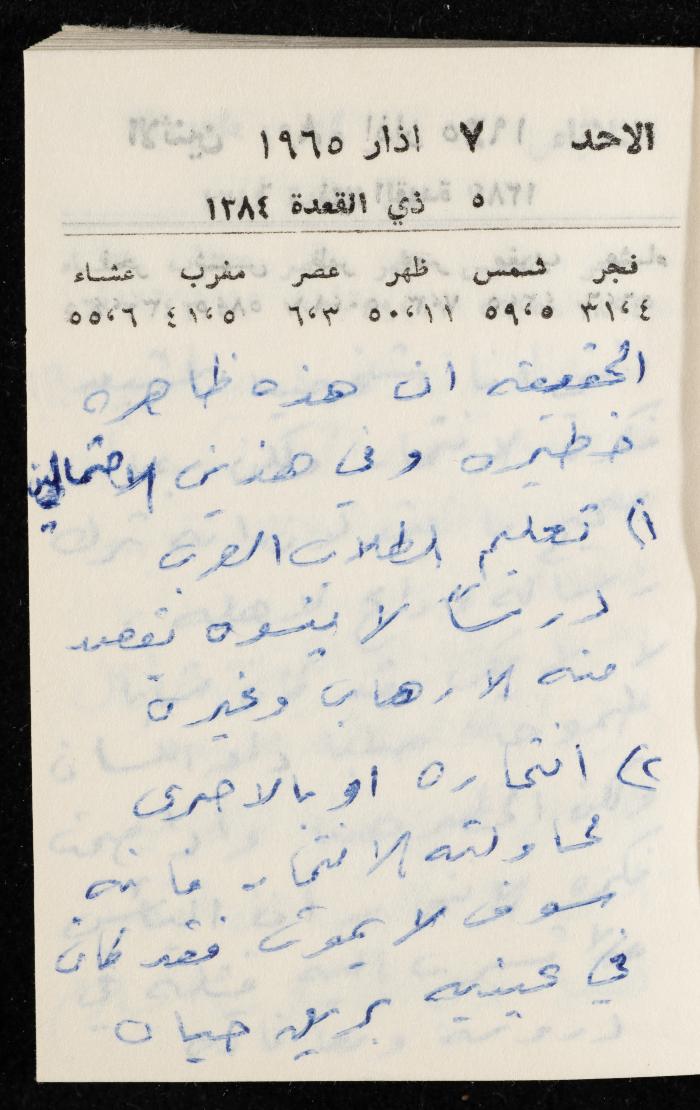 الاحد ٧ اذار ١٩٦٥
٥ ذي القعدة ١٣٨٤
فجر شمس ظهر عصر مغرب عشاء
٣١،٤ ٥٩،٥ ٥٠،١١ ٦،٣ ٤١،٥ ٥٥،٦
الحقيقه ان هذه ظاهره
خطيره وفي هذين الاحتمالين
١) تعليم الطلاب العرب
درساً لا ينسوه تقصد
منه الارهاب وغيره
٢) انتحاره او بالاحرى
محاولته الانتحار فانه
سوف لا يموت فقد كان
في عينيه بريق حياه